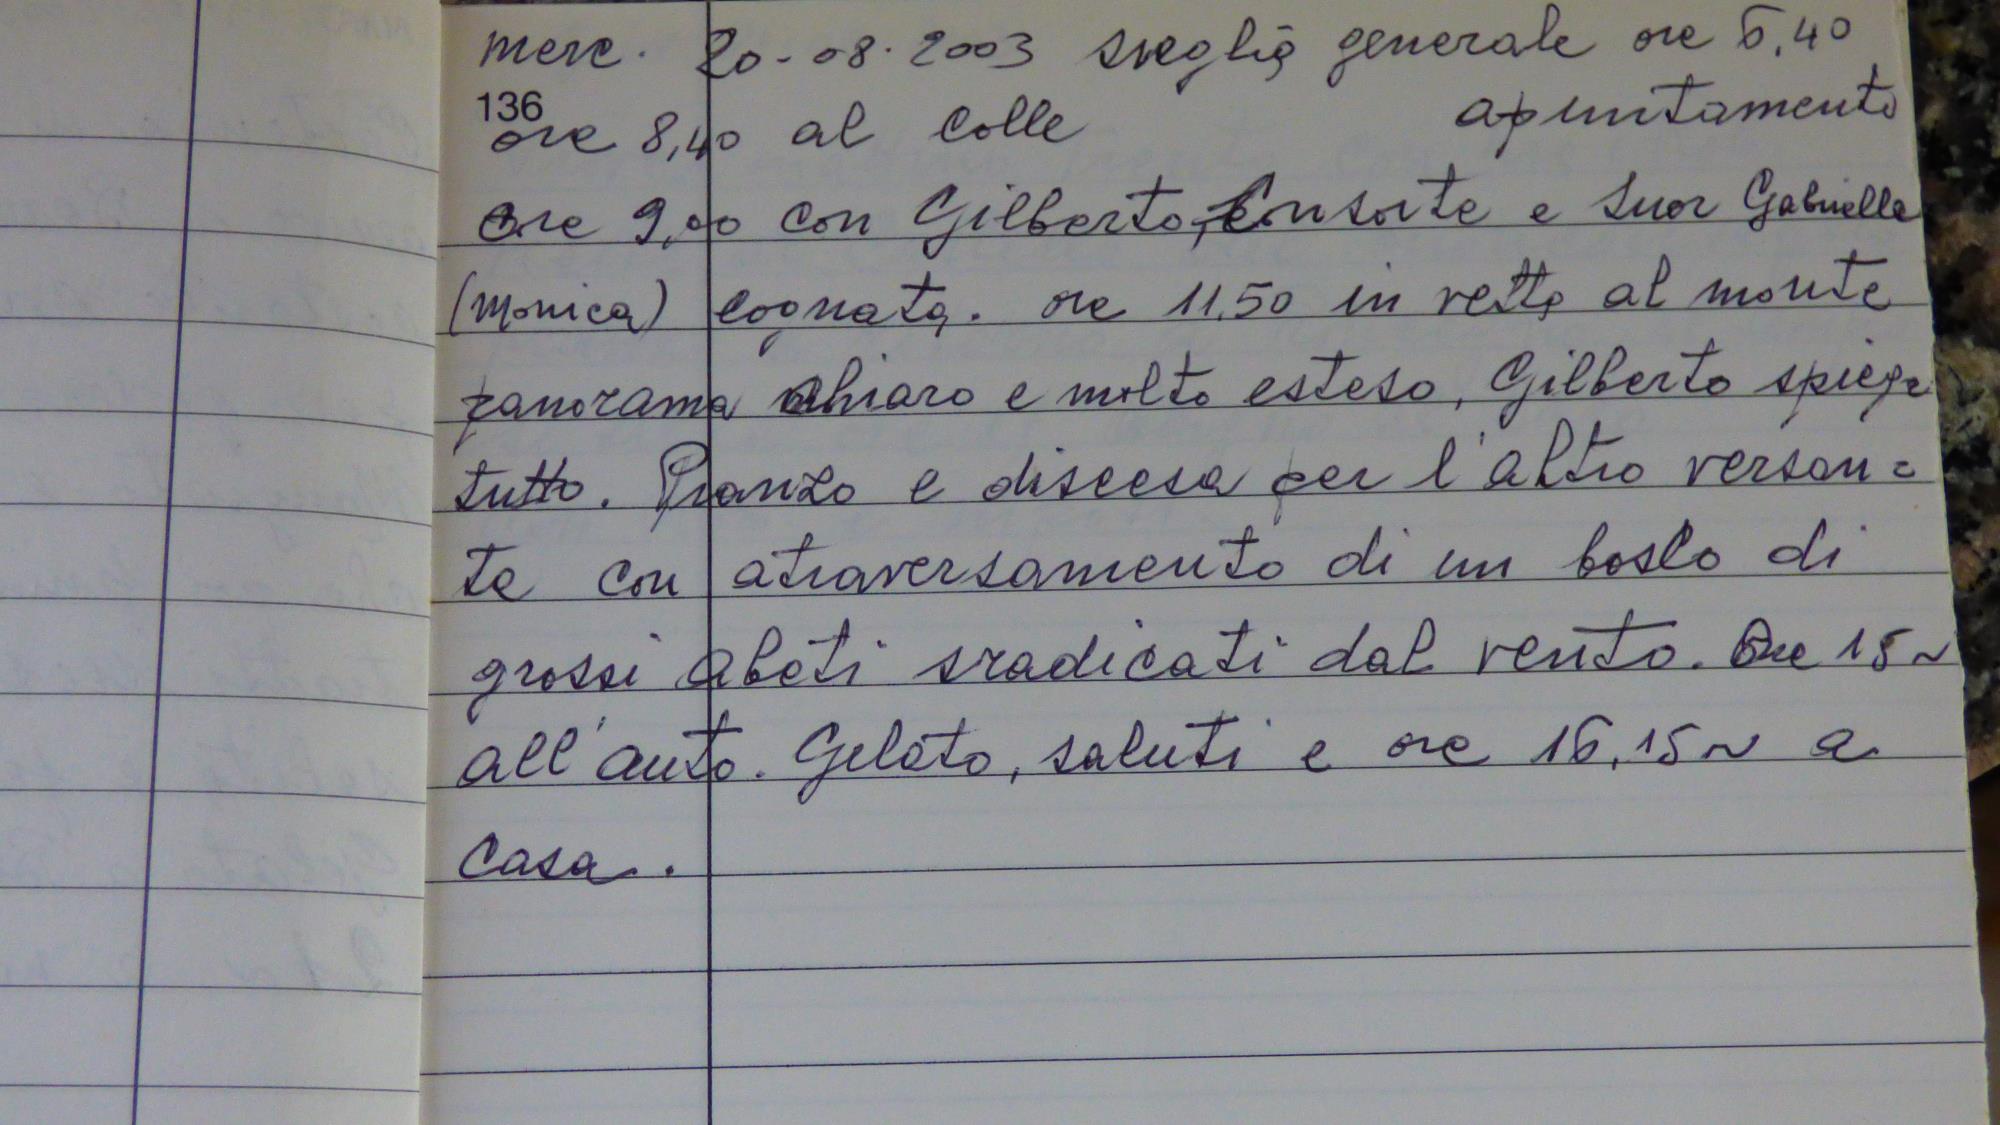 merc. 20-08.2003 sveglia generale ore 6,40
136
ore 8,40 al colle apuntamento
ore 9,00 con Gilberto, Consorte e Suor Gabriella
(Monica) cognata. ore 11.50 in vetta al monte
panorama chiaro e molto esteso, Gilberto spiega
tutto. Pranzo e discesa per l'altro versan=
te con atraversamento di un bosco di
grossi abeti sradicati dal vento. Ore 15~
all'auto. Gelato, saluti e ore 16,15~ a
casa.